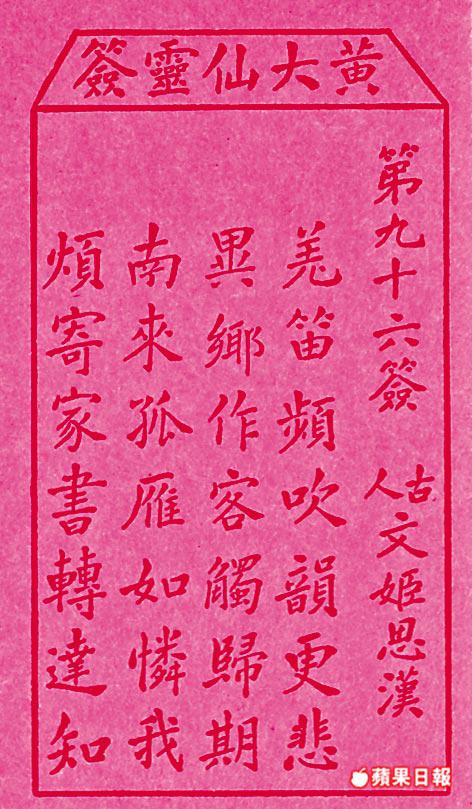 黃大仙靈簽
第九十六簽 古人 文姬思漢
羗笛頻吹韻更悲
異鄉作客觸歸期
南來孤雁如憐我
煩寄家書轉達知
蘋果日報